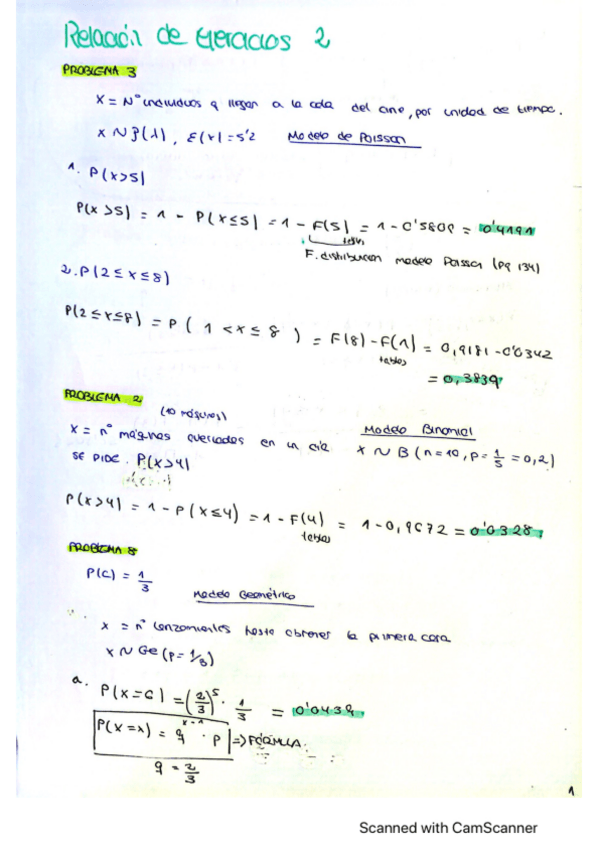 Relación de Ejercicios 2
PROBLEMA 3
X = Nº individuos q llegan a la cola del cine, por unidad de tiempo.
X ~ P(λ), E(x) = 5'2 Modelo de Poisson
1. P(x>5)
P(x>5) = 1 - P(x≤5) = 1 - F(5) = 1 - 0'5809 = 0'4191
tablas
F. distribución modelo Poisson (pg 134)
2. P(2 ≤ x ≤ 8)
P(2≤x≤8) = P( 1 < x ≤ 8 ) = F(8) - F(1) = 0,9181 - 0'0342
tablas
= 0,3839
PROBLEMA 2
(10 máquinas)
X = nº máquinas averiadas en un día Modelo Binomial
X ~ B (n=10, p = 1/5 = 0,2)
SE PIDE. P(x>4)
P(x>4) = 1 - P(x≤4) = 1 - F(4) = 1 - 0,9672 = 0'0328
tablas
PROBLEMA 8
P(C) = 1/3
Modelo Geométrico
X = nº lanzamientos hasta obtener la primera cara
X ~ Ge (p = 1/3)
a. P(x=6) = (2/3)^5 · 1/3 = 0'0439
P(x=x) = q^x-1 · p => FÓRMULA.
q = 2/3
1
Scanned with CamScanner